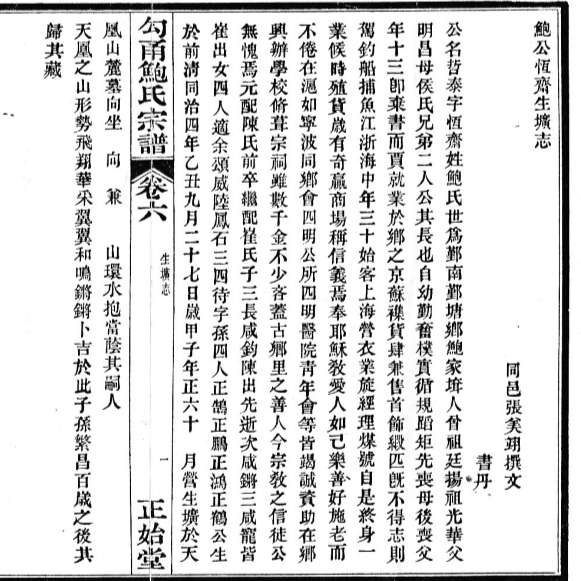 鮑公恆齋生壙志
同邑張美翊撰文
書丹
公名哲泰字恆齋姓鮑氏世爲鄞南鄞塘鄉鮑家埭人曾祖廷揚祖光華父
明昌母侯氏兄弟二人公其長也自幼勤奮樸實循規蹈矩先喪母後喪父
年十三卽棄書而賈就業於鄉之京蘇襍貨肆兼售首飾緞匹旣不得志則
駕釣船捕魚江浙海中年三十始客上海營衣業旋經理煤號自是終身一
業候時殖貨歲有奇贏商場稱信義焉奉耶穌敎愛人如己樂善好施老而
不倦在滬如寧波同鄉會四明公所四明醫院靑年會等皆竭誠資助在鄉
興辦學校脩葺宗祠雖數千金不少吝蓋古鄉里之善人今宗敎之信徒公
無愧焉元配陳氏前卒繼配崔氏子三長咸鈞陳出先逝次咸鏘三咸寵皆
崔出女四人適余頌威陸鳳石三四待字孫四人正鵠正鵬正鴻正鶴公生
於前清同治四年乙丑九月二十七日歲甲子年正六十 月營生壙於天
勾甬鮑氏宗譜 卷六 生壙志 一 正始堂
凰山麓墓向坐 向 兼 山環水抱當蔭其嗣人
天凰之山形勢飛翔華采翼翼和鳴鏘鏘卜吉於此子孫繁昌百歲之後其
歸其藏